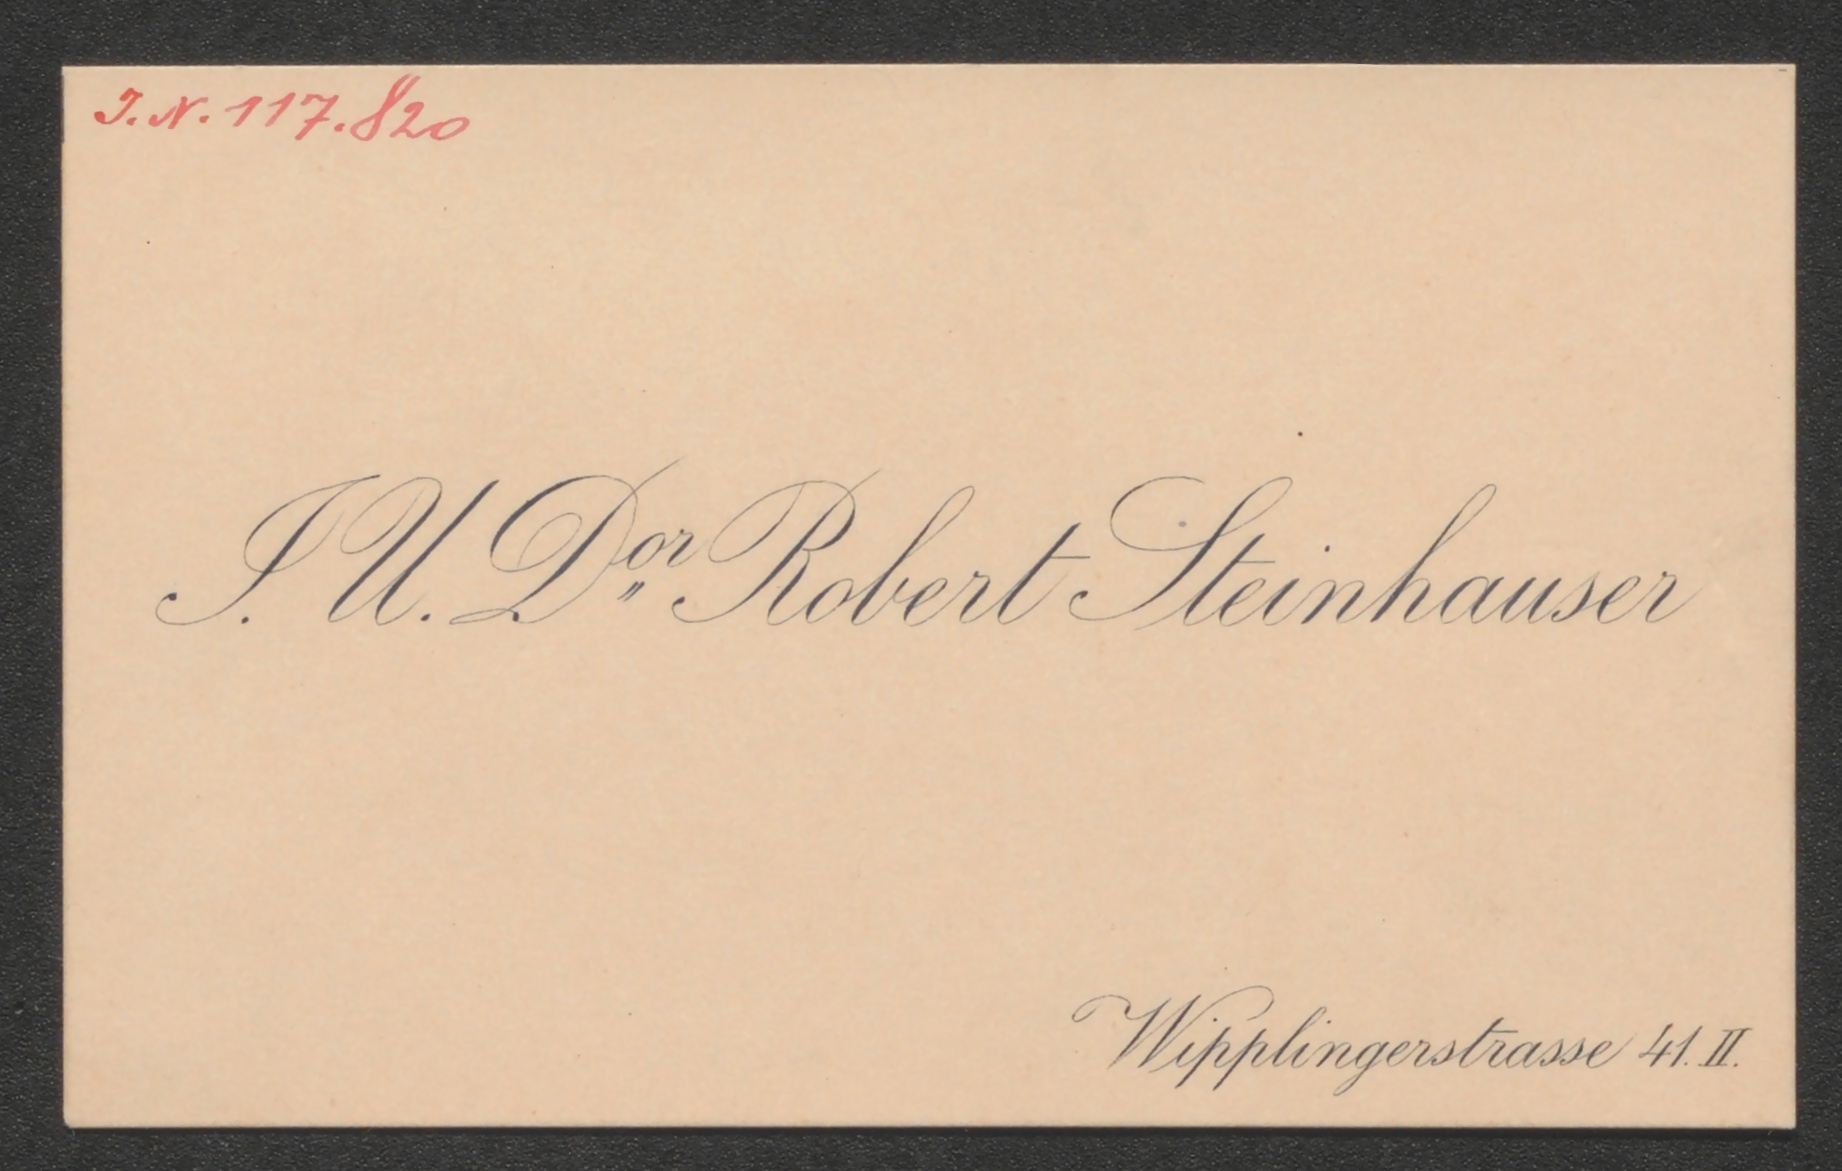 I.N. 117.820
J. U. Dor Robert Steinhauser
Wipplingerstrasse 41. II.